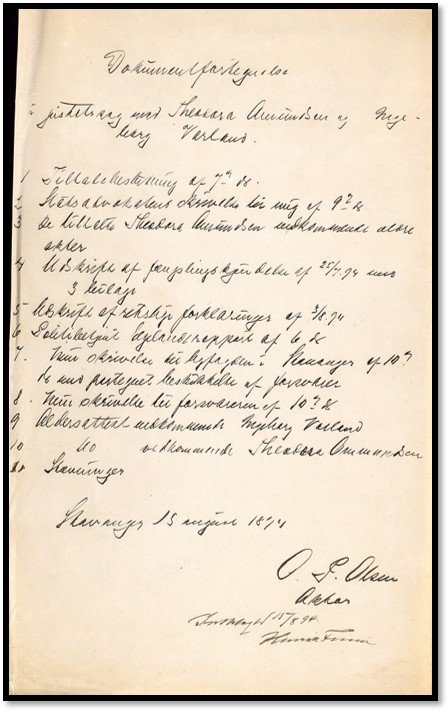 Dokumentfortegnelse
i justitssag mod Theodora Amundsen og Inge-
borg Varland.
1 Tiltalebeslutning af 7de ds.
2 Statsadvokatens skrivelse til mig af 9de ds
3 De tiltalte Theodora Amundsen vedkommende ældre
akter
4 Udskrift af fængslingskjendelse af 25/7.94 med
3 bilage
5 Udskrift af retslige forklaringer af 3/8.94
6 Politibetjent rapport af 6 ds
7. Min skrivelse til byfogden i Stavanger af 10de
ds med paategnet beskikkelse af forsvarer
8. Min skrivelse til forsvareren af 10de ds
9 Aldersattest vedkommende Ingborg Varland
10 do vedkommende Theodora Ammundsen
Stavanger
Stavanger 15 august 1894
O. S. Olsen
Aktor
15/8.94.